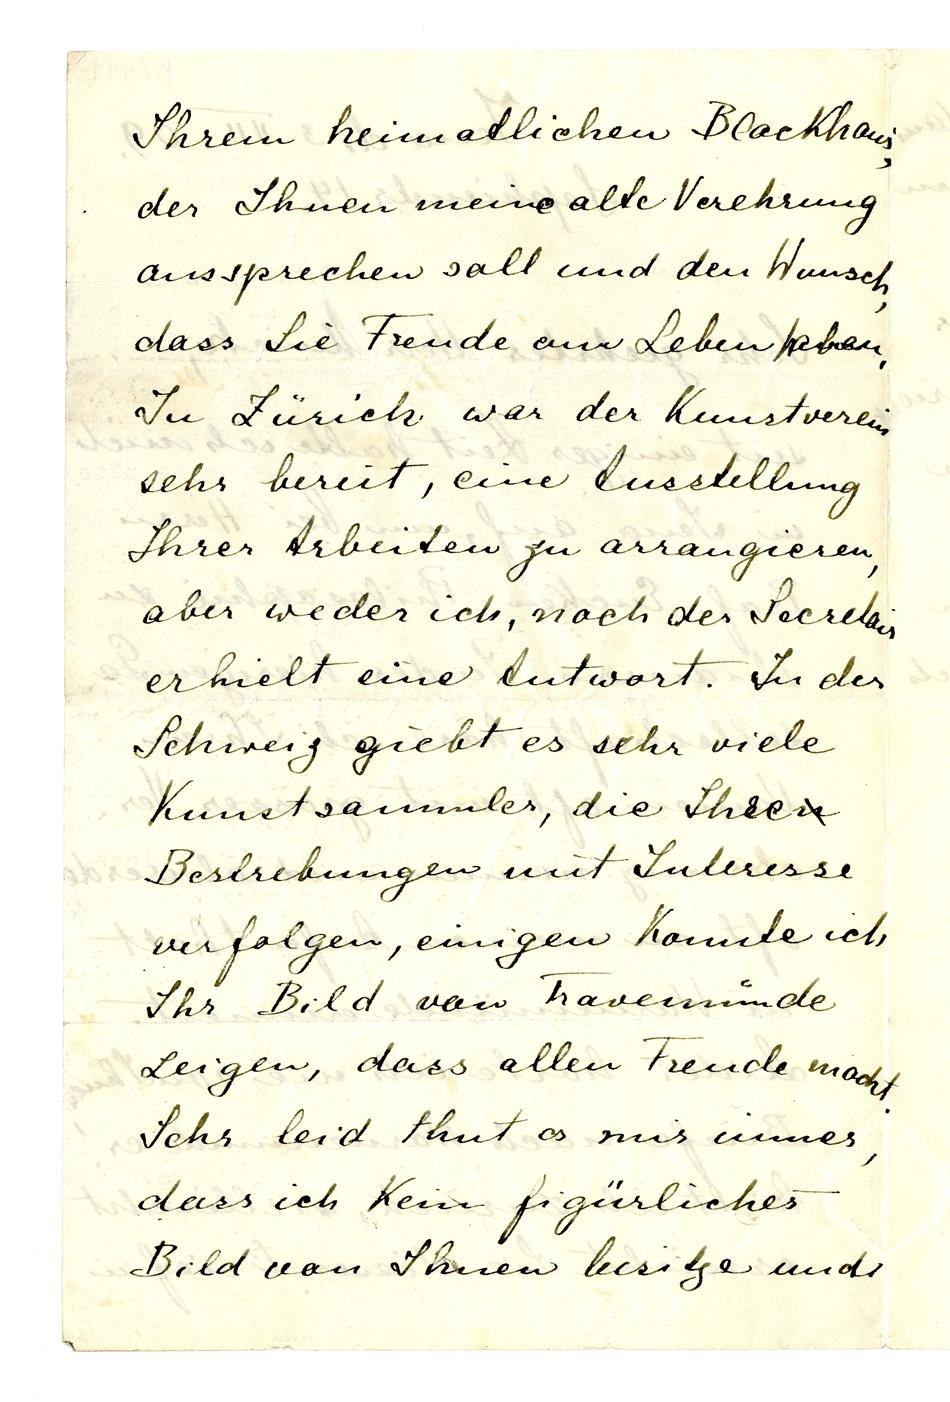 Ihrem heimatlichen Blockhaus,
der Ihnen meine alte Verehrung
aussprechen soll und den Wunsch,
dass Sie Freude am Leben haben,
In Zürich war der Kunstverein
sehr bereit, eine Ausstellung
Ihrer Arbeiten zu arrangieren,
aber weder ich, noch der Secretair
erhielt eine Antwort. In der
Schweiz giebt es sehr viele
Kunstsammler, die Ihren
Bestrebungen mit Interesse
verfolgen, einigen konnte ich
Ihr Bild von Travemünde
zeigen, dass allen Freude macht.
Sehr leid thut es mir immer,
dass ich kein figürliches
Bild von Ihnen besitze und